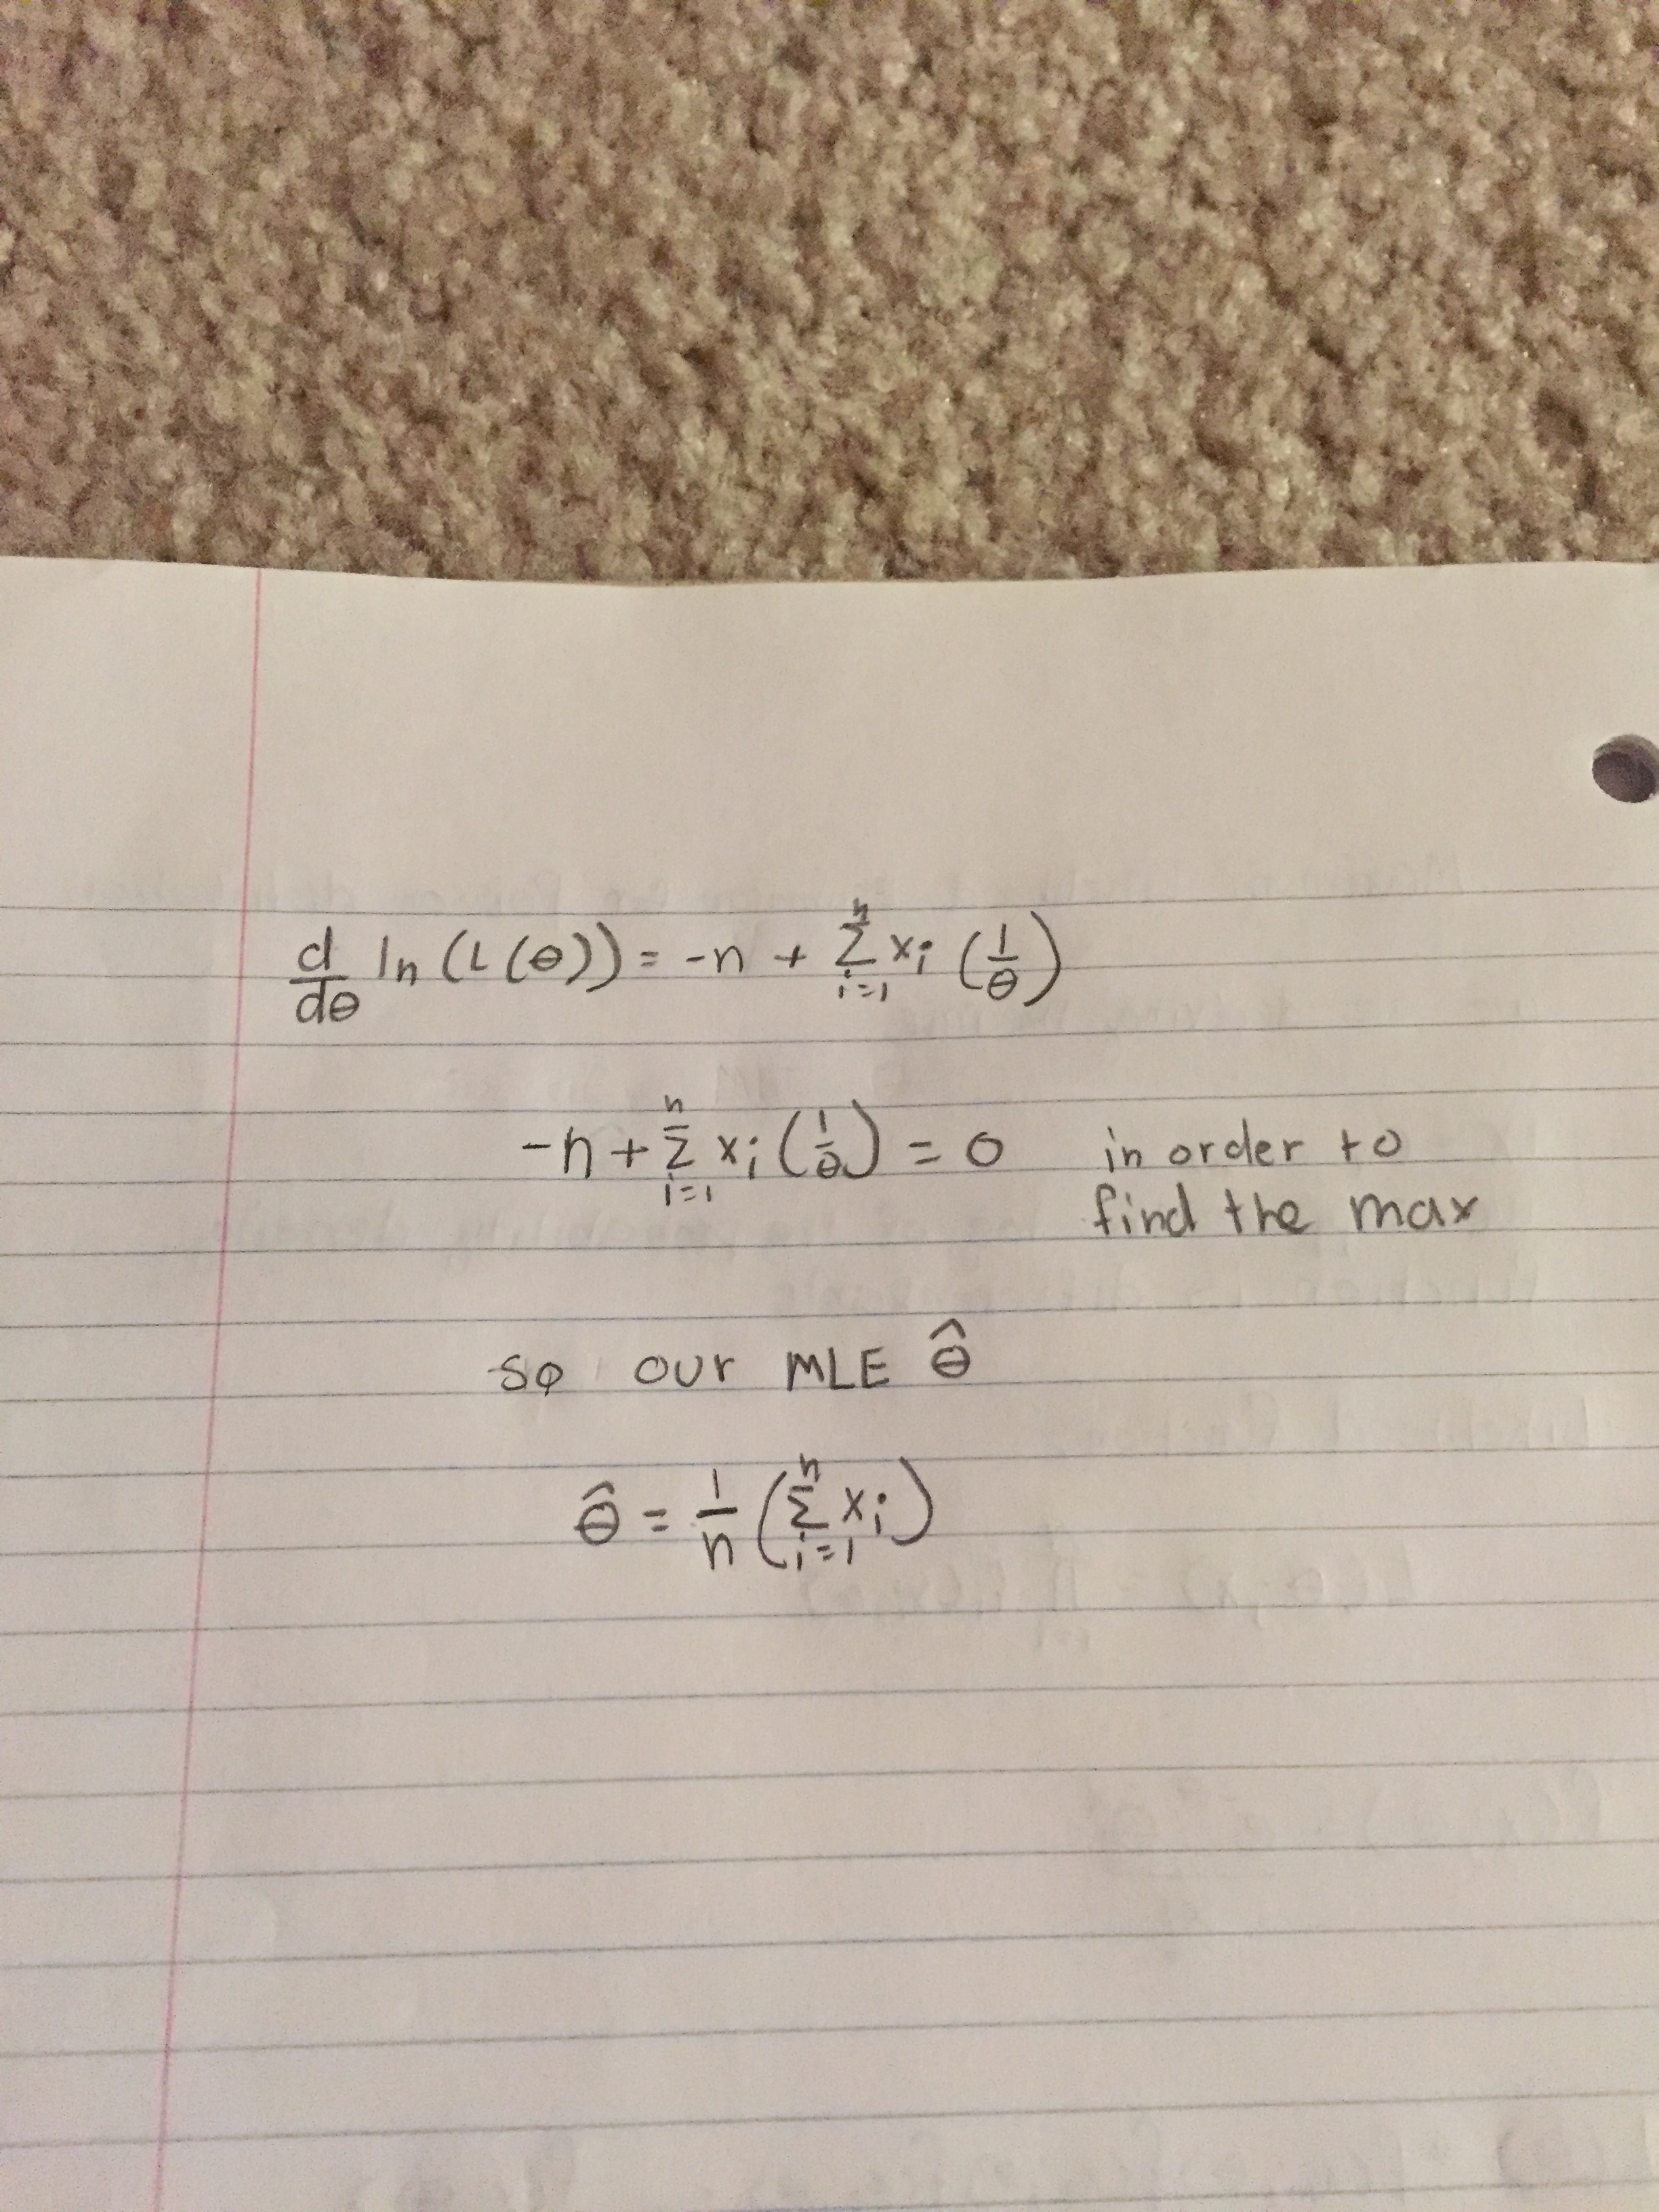 d/dθ ln(L(θ)) = -n + Σ_{i=1}^{n} xᵢ (1/θ)
-n + Σ_{i=1}^{n} xᵢ (1/θ) = 0 in order to
find the max
so our MLE θ̂
θ̂ = 1/n (Σ_{i=1}^{n} xᵢ)